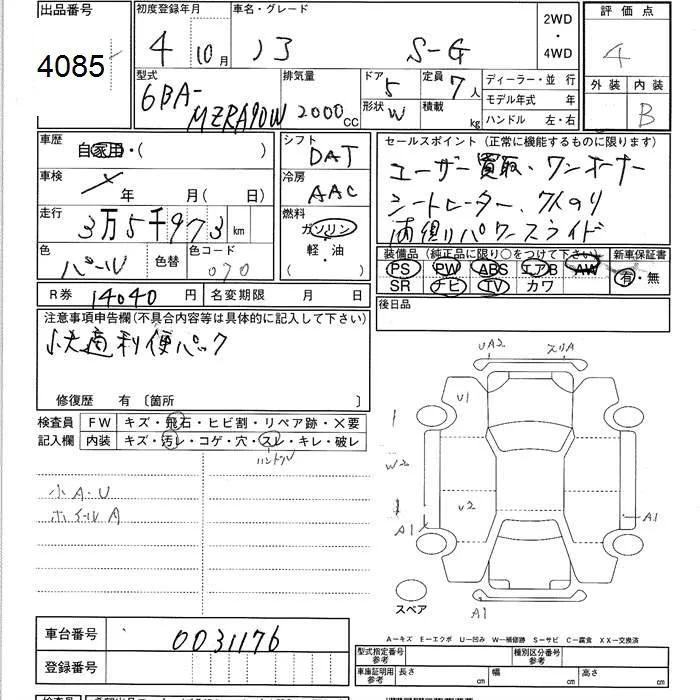 出品番号 4085
初度登録年月 4 10月
車名・グレード ノア S-G
2WD・4WD
評価点 4
外装 内装 B
型式 6BA-MZRA90W
排気量 2000cc
ドア 5 形状 W
定員 7人 積載 kg
ディーラー・並行
モデル年式 年
ハンドル 左・右
車歴 自家用・( )
車検 年 月( 日)
走行 3万5千973km
色 パール 色替 色コード 070
シフト DAT
冷房 AAC
燃料 ガソリン 軽・油 ( )
セールスポイント(正常に機能するものに限ります)
ユーザー買取・ワンオーナー
シートヒーター、7人のり
両側パワースライド
装備品(純正品に限り○をつけて下さい) 新車保証書
PS PW ABS エアB AW 有・無
SR ナビ TV カワ
R券 14040円 名変期限 月 日
後日品
注意事項申告欄(不具合内容等は具体的に記入して下さい)
快適利便パック
修復歴 有 〔箇所 〕
検査員 FW キズ・飛石・ヒビ割・リペア跡・X要
記入欄 内装 キズ・汚レ・コゲ・穴・スレ・キレ・破レ
ハンドル
小A・U
ホイールA
UA2 スリA
U1
W2
U2
A1
A1
A1
スペア
A−キズ E−エクボ U−凹み W−補修跡 S−サビ C−腐食 XX−交換済
車台番号 0031176
登録番号
型式指定番号 参考 種別区分番号 参考
車庫証明用 参考 長さ cm 幅 cm 高さ cm